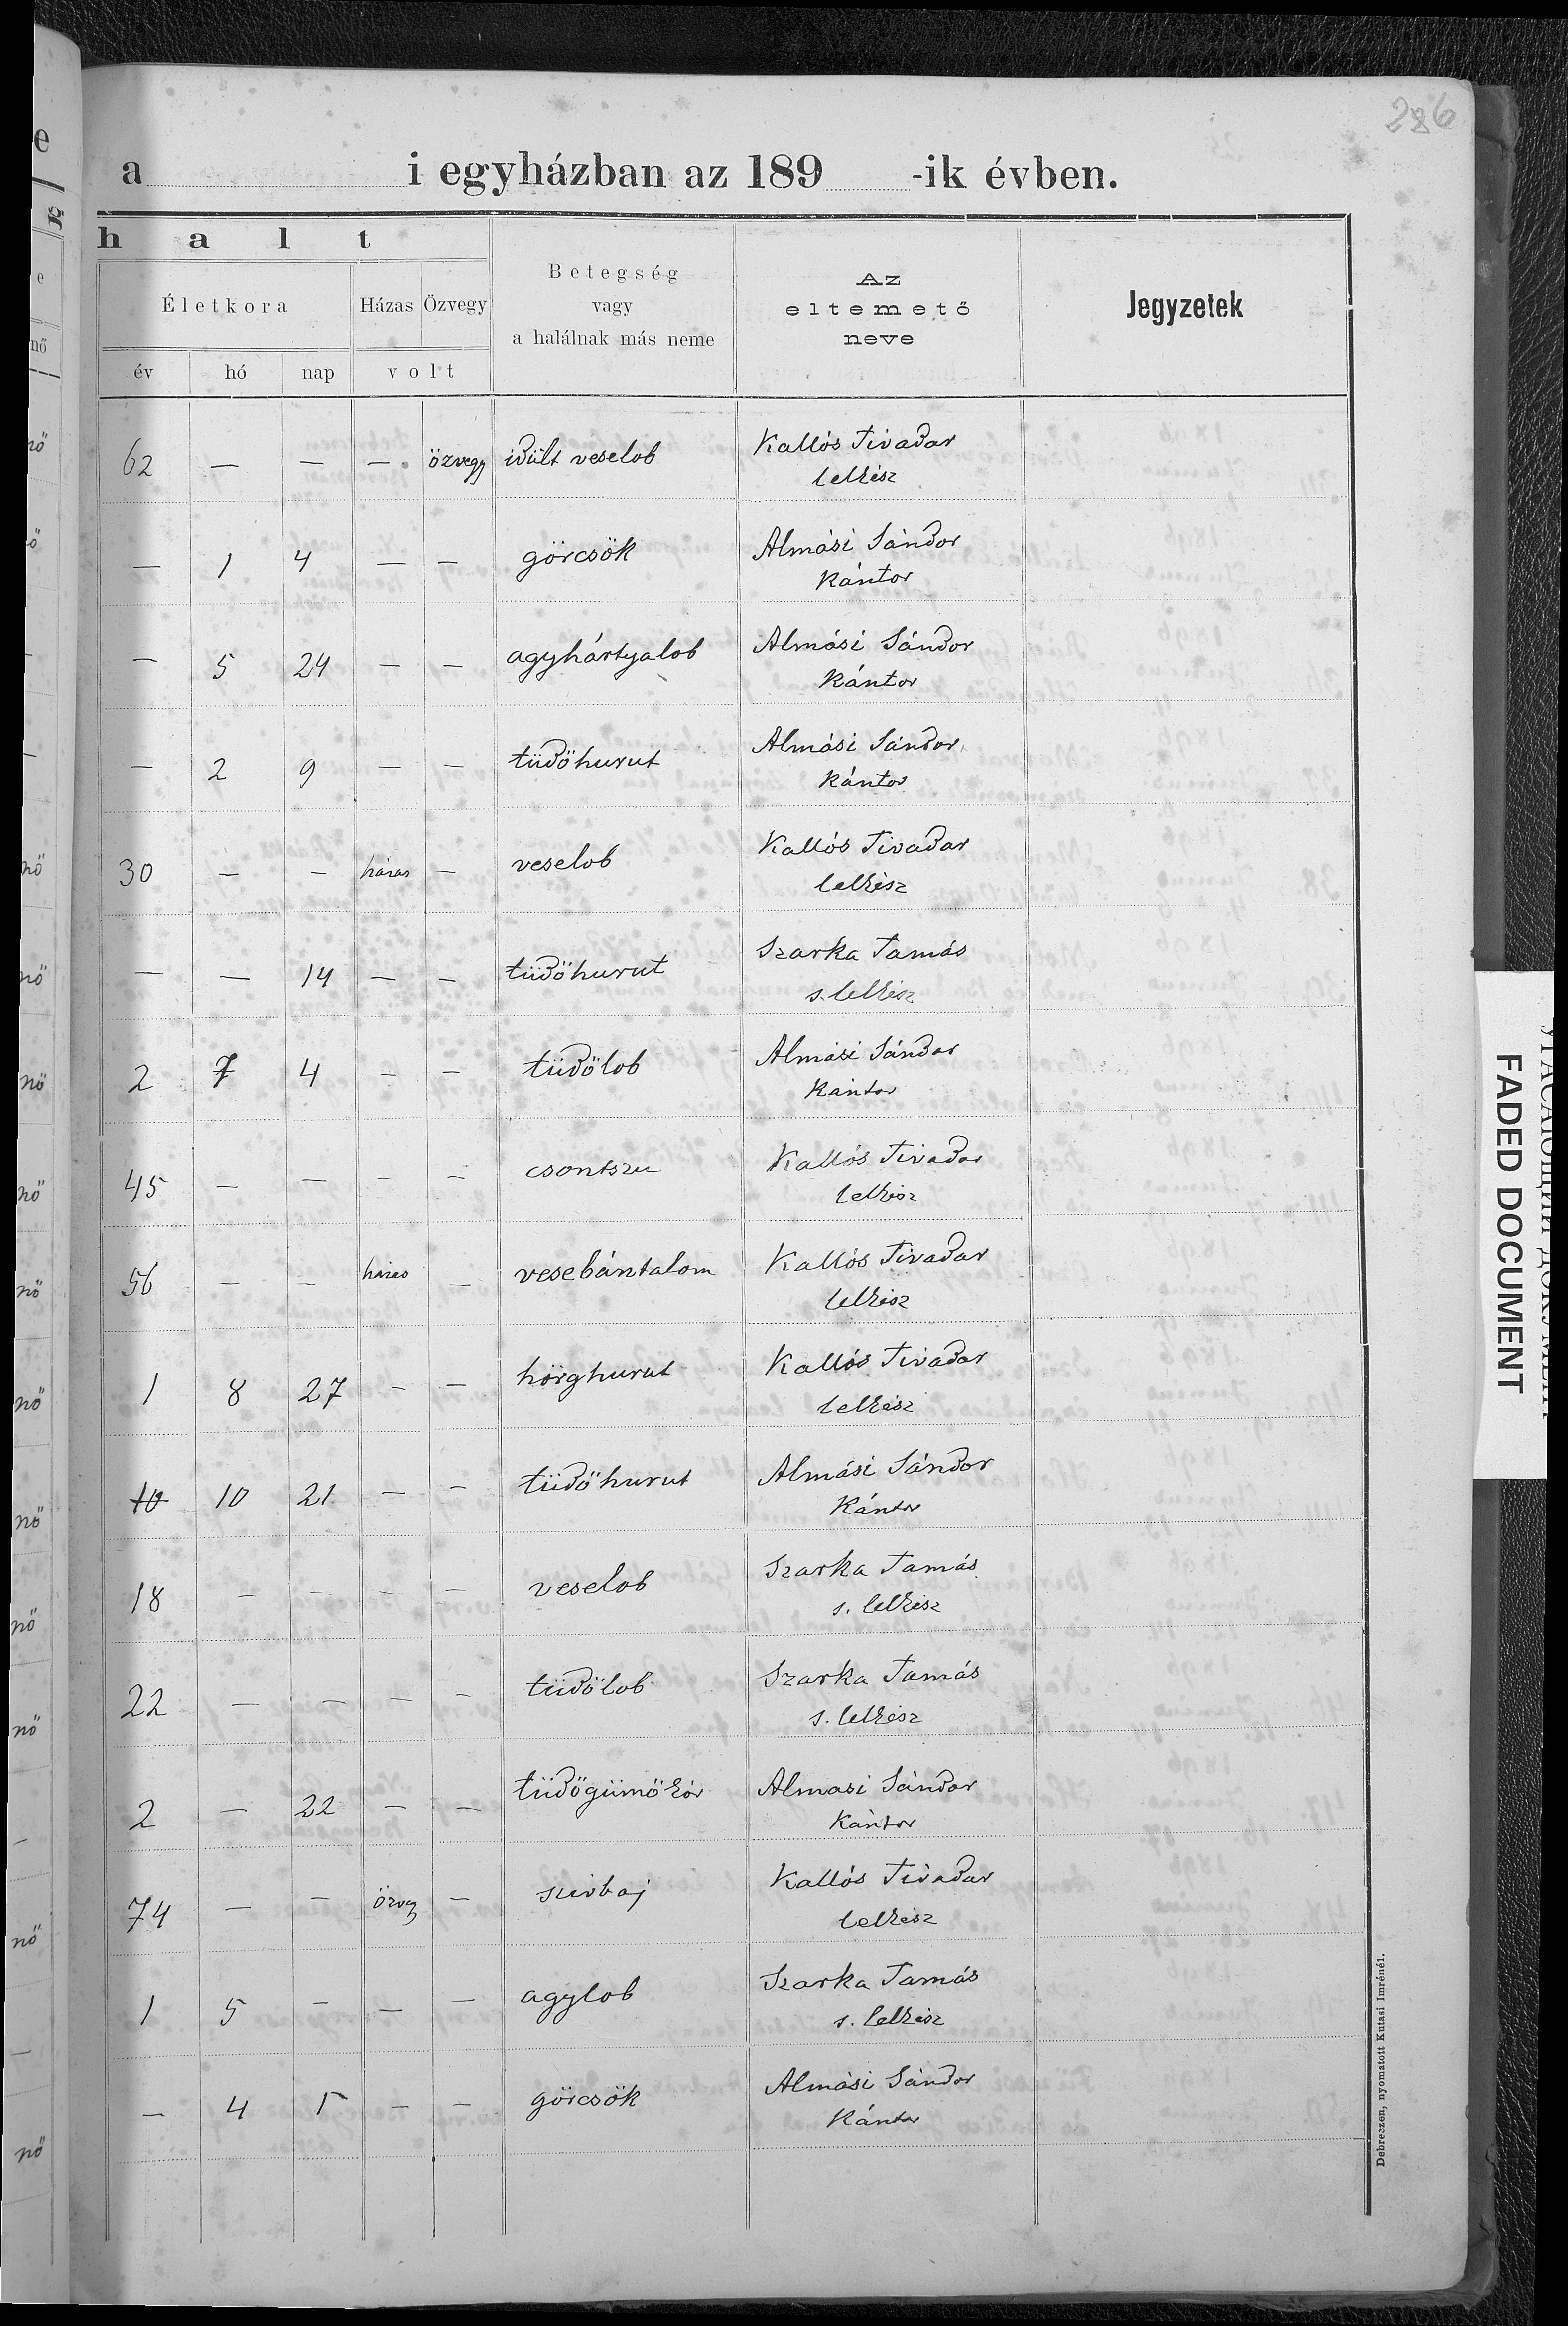 286
a i egyházban az 189 -ik évben.
h a l t
Életkora
Házas Özvegy
Betegség
vagy
a halálnak más neme
Az
eltemető
neve
Jegyzetek
év hó nap volt
62 — — — özvegy idült veselob Kallós Tivadar
lelkész
— 1 4 — — görcsök Almási Sándor
kántor
— 5 24 — — agyhártyalob Almási Sándor
kántor
— 2 9 — — tüdőhurut Almási Sándor
kántor
30 — — házas — veselob Kallós Tivadar
lelkész
— — 14 — — tüdőhurut Szarka Tamás
s. lelkész
2 7 4 — — tüdőlob Almási Sándor
kántor
45 — — — — csontszu Kallós Tivadar
lelkész
56 — — házas — vesebántalom Kallós Tivadar
lelkész
1 8 27 — — hörghurut Kallós Tivadar
lelkész
10 10 21 — — tüdőhurut Almási Sándor
kántor
18 — — — — veselob Szarka Tamás
s. lelkész
22 — — — — tüdőlob Szarka Tamás
s. lelkész
2 — 22 — — tüdőgümőkór Almasi Sándor
kántor
74 — — özvegy — szivbaj Kallós Tivadar
lelkész
1 5 — — — agylob Szarka Tamás
s. lelkész
— 4 1 — — görcsök Almási Sándor
kántor
Debreczen, nyomatott Kutasi Imrénél.
FADED DOCUMENT